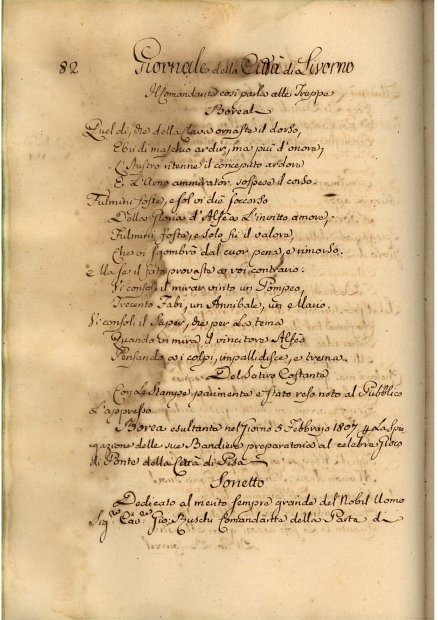 82 Giornale della Città di Livorno
Il Comandante così parla alle Truppe
Boreali
Quel dì, che della Clava ornaste il dorso,
Ebri di maschio ardir, ma più d'onore,
L'Austro ritenne il conceputo ardore
E l'Arno ammirator sospese il corso.
Fulmini foste, e sol vi diè soccorso
Della Gloria d'Alfea l'invitto amore,
Fulmini foste, e solo fù il valore,
Che vi sgombrò dal cuor pena, e rimorso.
E Ma se il fato provaste a voi contrario.
Vi consoli il mirar vinto un Pompeo,
Trecento Fabi, un Annibale, un e Mario.
Vi consoli il saper, che per Lo tema
Quando in mira il vincitore Alfeo
Pensando ai colpi, impallidisce, e trema.
Del Satiro Costante
Con Le Stampe parimente è stato reso noto al Pubblico
L'appresso
Borea esultante nel Giorno 5 Febbrajo 1807 La Spie
gazione delle sue Bandiere preparatoria al celebre Gioco
di Ponte della Città di Pisa
Sonetto
Dedicato al merito sempre grande del Nobil Uomo
Sig.re Cav.re Gio: Buschi Comandante della Parte di